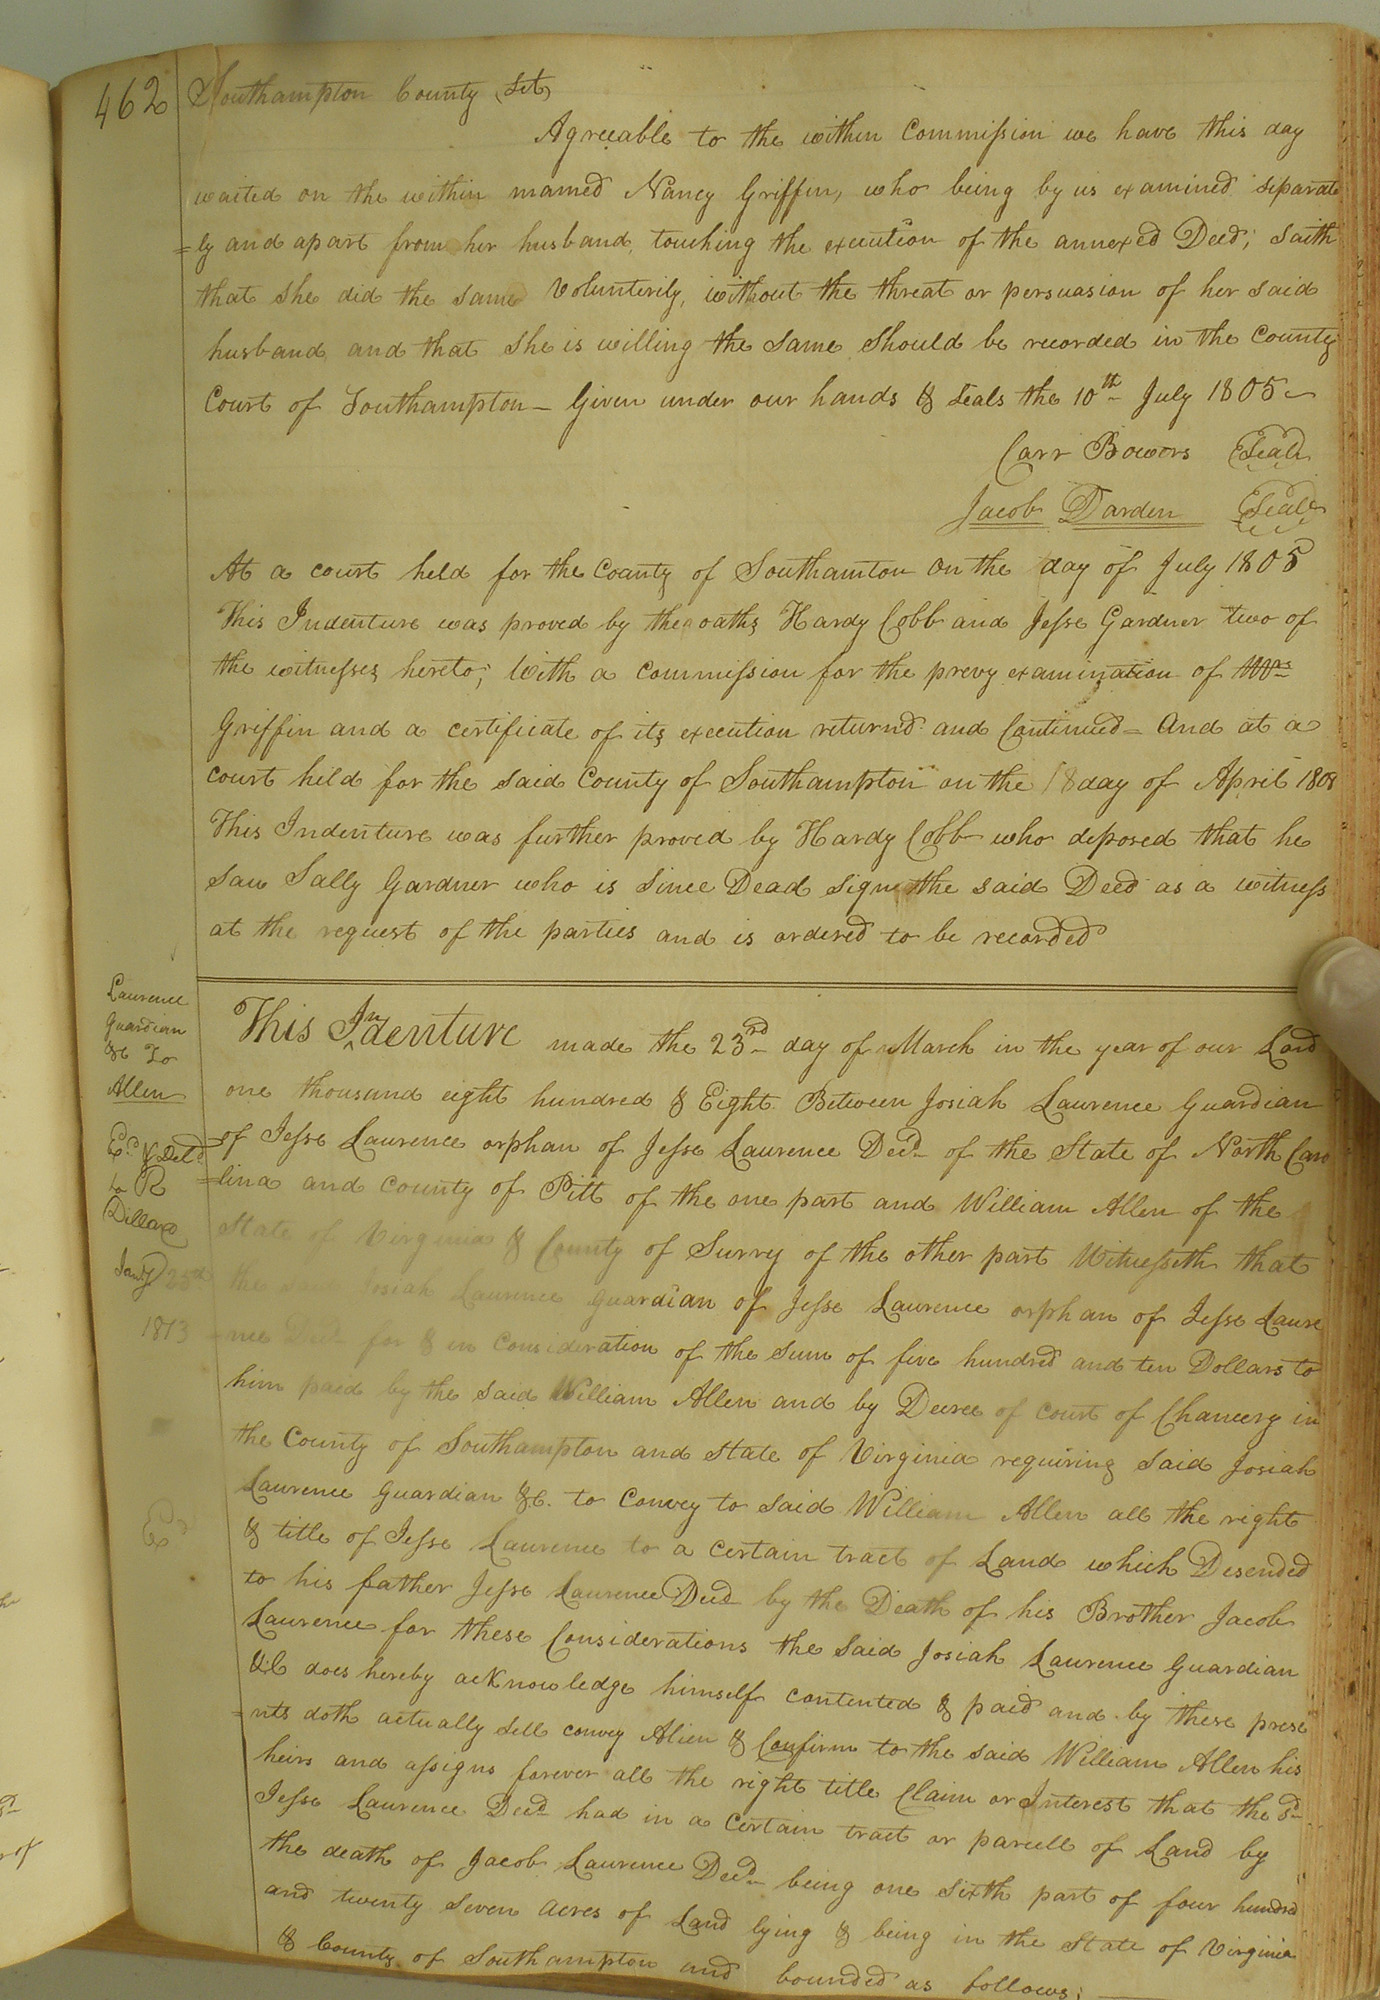 462
Southampton County (Sct)
Agreeable to the within Commission we have this day
waited on the within named Nancy Griffin, who being by us examined separate
=ly and apart from her husband, touching the execution of the annexed Deed; saith
that she did the same Volunterily, without the threat or persuasion of her said
husband and that she is willing the same should be recorded in the County
Court of Southampton – Given under our hands & seals the 10th July 1805
Carr Bowers (Seal)
Jacob Darden (Seal)
At a court held for the County of Southamton on the day of July 1805
This Indenture was proved by the oaths Hardy Cobb and Jesse Gardner two of
the witnesses hereto; With a commission for the prevy examination of Mrs
Griffin and a certificate of its execution returnd and Continued = And at a
court held for the said County of Southampton on the 18 day of April 1808
This Indenture was further proved by Hardy Cobb who deposed that he
saw Sally Gardner who is since Dead sign the said Deed as a witness
at the request of the parties and is ordered to be recorded
Laurence
Guardian
&c To
Allen
Exd & Deld
to R
Dillard
Jany 25th
1813
Exd
This Indenture made the 23rd day of March in the year of our Lord
one thousand eight hundred & Eight Between Josiah Laurence Guardian
of Jesse Laurence orphan of Jesse Laurence Decd of the State of North Caro
=lina and County of Pitt of the one part and William Allen of the
State of Virginia & County of Surry of the other part Witnesseth that
the said Josiah Laurence guardian of Jesse Laurence orphan of Jesse Laure
=nce Decd for & in Consideration of the sum of five hundred and ten Dollars to
him paid by the said William Allen and by Decree of court of Chancery in
the County of Southampton and State of Virginia requiring said Josiah
Laurence Guardian &c. to Convey to said William Allen all the right
& title of Jesse Laurence to a certain tract of Land which Desended
to his father Jesse Laurence Decd by the Death of his Brother Jacob
Laurence for these Considerations the said Josiah Laurence Guardian
&c does hereby acknowledge himself contented & paid and by these prese
=nts doth actually sell convey Alien & Confirm to the said William Allen his
heirs and assigns forever all the right title Claim or Interest that the sd
Jesse Laurence Decd had in a certain tract or parcell of Land by
the death of Jacob Laurence Decd being one sixth part of four hundred
and twenty seven acres of Land lying & being in the State of Virginia
& County of Southampton and bounded as follows;